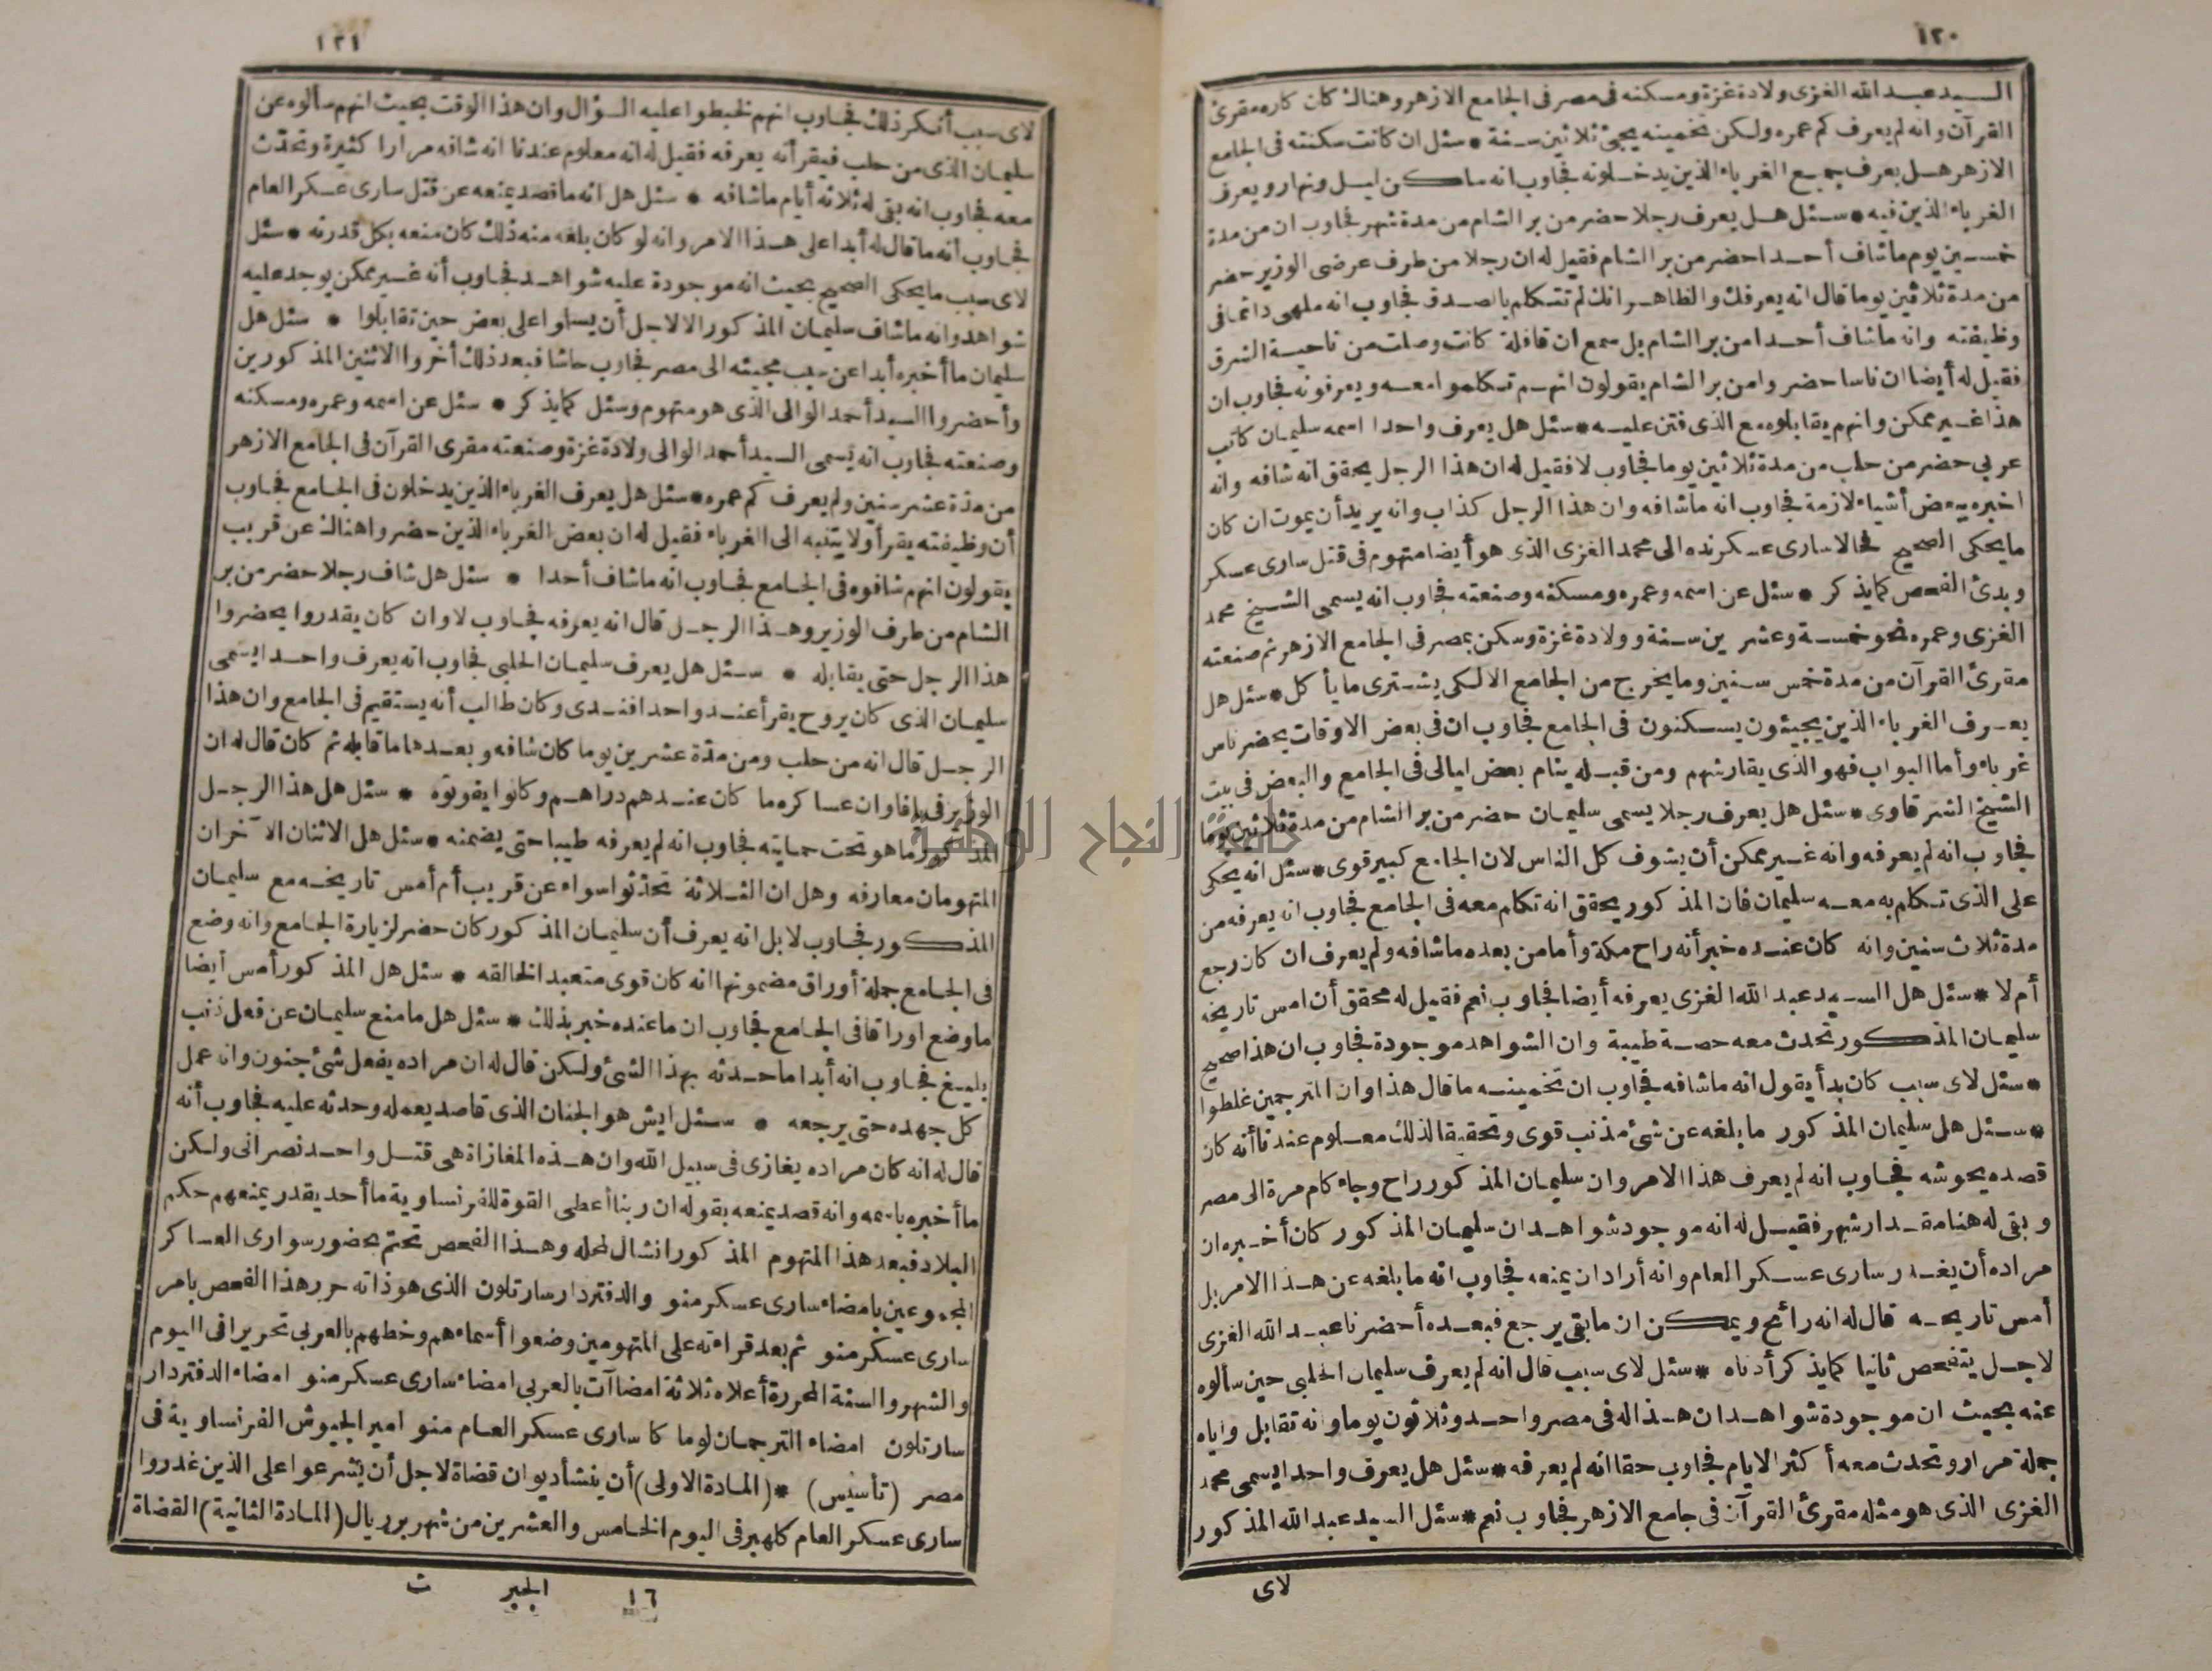 ١٢٠
السيد عبد الله الغزى ولادة غزة ومسكنه فى مصر فى الجامع الازهر وهنالك كان كاره مقرئ
القرآن وانه لم يعرف كم عمره ولكن تخمينه يجىء ثلاثين سنة * سئل ان كانت سكنته فى الجامع
الازهر هل يعرف جميع الغرباء الذين يدخلونه فجاوب انه ماكن ليل ونهار ويعرف
الغرباء الذين فيه * سئل هل يعرف رجلا حضر من بر الشام من مدة شهر فجاوب ان من مدة
خمسين يوم ماشاف أحدا حضر من بر الشام فقيل له ان رجلا من طرف عرضى الوزير حضر
من مدة ثلاثين يوما قال انه يعرفك والظاهر انك لم تتكلم بالصدق فجاوب انه ملهى دائما فى
وظيفته وانه ماشاف أحدا من بر الشام بل سمع ان قافلة كانت وصلت من ناحية الشرق
فقيل له أيضا ان ناسا حضروا من بر الشام يقولون انهم تكلموا معه ويعرفونه فجاوب ان
هذا غير ممكن وانهم يقابلوه مع الذى فتن عليه * سئل هل يعرف واحدا اسمه سليمان كاتب
عربي حضر من حلب من مدة ثلاثين يوما فجاوب لا فقيل له ان هذا الرجل يحقق انه شافه وانه
اخبره ببعض أشياء لازمة فجاوب انه ماشافه وان هذا الرجل كذاب وانه يريد أن يموت ان كان
مايحكى الصحيح فحالا سارى عسكر نده الى محمد الغزى الذى هو أيضا متهوم فى قتل سارى عسكر
وبدئ الفحص كمايذكر * سئل عن اسمه وعمره ومسكنه وصنعته فجاوب انه يسمى الشيخ محمد
الغزى وعمره نحو خمسة وعشرين سنة وولادة غزة وسكن بمصر فى الجامع الازهر ثم صنعته
مقرئ القرآن من مدة خمس سنين ومايخرج من الجامع الا لكى يشترى مايأكل * سئل هل
يعرف الغرباء الذين يجيئون يسكنون فى الجامع فجاوب ان فى بعض الاوقات يحضر ناس
غرباء وأما البواب فهو الذى يقارشهم ومن قبله ينام بعض ليالى فى الجامع والبعض فى بيت
الشيخ الشرقاوى * سئل هل يعرف رجلا يسمى سليمان حضر من بر الشام من مدة ثلاثين يوما
فجاوب انه لم يعرفه وانه غير ممكن أن يشوف كل الناس لان الجامع كبير قوى * سئل انه يحكى
على الذى تكلم به معه سليمان فان المذكور يحقق انه تكلم معه فى الجامع فجاوب انه يعرفه من
مدة ثلاث سنين وانه كان عنده خبر أنه راح مكة وأما من بعده ماشافه ولم يعرف ان كان رجع
أم لا * سئل هل السيد عبد الله الغزى يعرفه أيضا فجاوب نعم فقيل له محقق أن امس تاريخه
سليمان المذكور تحدث معه حصة طيبة وان الشواهد موجودة فجاوب ان هذا صحيح
* سئل لاى سبب كان بدأ يقول انه ماشافه فجاوب ان تخمينه ماقال هذا وان المترجمين غلطوا
* سئل هل سليمان المذكور مابلغه عن شئ مذنب قوى وتحقيقا لذلك معلوم عندنا أنه كان
قصده يحوشه فجاوب انه لم يعرف هذا الامر وان سليمان المذكور راح وجاء كام مرة الى مصر
وبقى له هنا مقدار شهر فقيل له انه موجود شواهد ان سليمان المذكور كان أخبره ان
مراده أن يغدر سارى عسكر العام وانه أراد ان يمنعه فجاوب انه مابلغه عن هذا الامر بل
أمس تاريخه قال له انه رائح ويمكن ان مابقى يرجع فبعده أحضرنا عبد الله الغزى
لاجل يتفحص ثانيا كمايذكر أدناه * سئل لاى سبب قال انه لم يعرف سليمان الحلبى حين سألوه
عنه بحيث ان موجودة شواهد ان هذا له فى مصر واحد وثلاثون يوما وانه تقابل واياه
جملة مرار وتحدث معه أكثر الايام فجاوب حقا انه لم يعرفه * سئل هل يعرف واحدا يسمى محمد
الغزى الذى هو مثله مقرئ القرآن فى جامع الازهر فجاوب نعم * سئل السيد عبد الله المذكور
لاى
١٢١
لاى سبب أنكر ذلك فجاوب انهم لخبطوا عليه السؤال وان هذا الوقت بحيث انهم سألوه عن
سليمان الذى من حلب فيقر أنه يعرفه فقيل له انه معلوم عندنا انه شافه مرارا كثيرة وتحدّث
معه فجاوب انه بقى له ثلاثة أيام ماشافه * سئل هل انه ماقصد يمنعه عن قتل سارى عسكر العام
فجاوب أنه ماقال له أبدا على هذا الامر وانه لو كان بلغه منه ذلك كان منعه بكل قدرته * سئل
لاى سبب مايحكى الصحيح بحيث انه موجودة عليه شواهد فجاوب أنه غير ممكن يوجد عليه
شواهد وانه ماشاف سليمان المذكور الا لاجل أن يسلوا على بعض حين تقابلوا * سئل هل
سليمان ماأخبره أبدا عن سبب مجيئه الى مصر فجاوب حاشا فبعد ذلك أخروا الاثنين المذكورين
وأحضروا السيد أحمد الوالى الذى هو متهوم وسئل كمايذكر * سئل عن اسمه وعمره ومسكنه
وصنعته فجاوب انه يسمى السيد أحمد الوالى ولادة غزة وصنعته مقرى القرآن فى الجامع الازهر
من مدّة عشر سنين ولم يعرف كم عمره * سئل هل يعرف الغرباء الذين يدخلون فى الجامع فجاوب
أن وظيفته يقرأ ولا يتنبه الى الغرباء فقيل له ان بعض الغرباء الذين حضروا هنالك عن قريب
يقولون انهم شافوه فى الجامع فجاوب انه ماشاف أحدا * سئل هل شاف رجلا حضر من بر
الشام من طرف الوزير وهذا الرجل قال انه يعرفه فجاوب لا وان كان يقدروا يحضروا
هذا الرجل حتى يقابله * سئل هل يعرف سليمان الحلبى فجاوب انه يعرف واحدا يسمى
سليمان الذى كان يروح يقرأ عند واحد افندى وكان طالب أنه يستقيم فى الجامع وان هذا
الرجل قال انه من حلب ومن مدّة عشرين يوما كان شافه وبعدها ماقابله ثم كان قال له ان
الوزير فى يافا وان عساكره ما كان عندهم دراهم وكانوا يفوتوه * سئل هل هذا الرجل
المذكور ما هو تحت حمايته فجاوب انه لم يعرفه طيبا حتى يضمنه * سئل هل الاثنان الآخران
المتهومان معارفه وهل ان الثلاثة تحدّثوا سواء عن قريب أم أمس تاريخه مع سليمان
المذكور فجاوب لا بل انه يعرف أن سليمان المذكور كان حضر لزيارة الجامع وانه وضع
فى الجامع جملة أوراق مضمونها انه كان قوى متعبد الخالقه * سئل هل المذكور أمس أيضا
ماوضع اوراقا فى الجامع فجاوب ان ماعنده خبر بذلك * سئل هل مامنع سليمان عن فعل ذنب
بليغ فجاوب انه أبدا ماحدثه بهذا الشئ ولكن قال له ان مراده يفعل شئ جنون وانه عمل
كل جهده حتى يرجعه * سئل ايش هو الجنان الذى قاصد يعمله وحدثه عليه فجاوب أنه
قال له انه كان مراده يغازى فى سبيل الله وان هذه المغازاة هى قتل واحد نصرانى ولكن
ماأخبره باسمه وانه قصد يمنعه بقوله ان ربنا أعطى القوة للفرنساوية ماأحد يقدر يمنعهم حكم
البلاد فبعد هذا المتهوم المذكور انشال لمحله وهذا الفحص تحتم بحضور سوارى العساكر
المجموعين بامضاء سارى عسكر منو والدفتردار سارتلون الذى هو ذاته حرر هذا الفحص بامر
سارى عسكر منو ثم بعد قراءته على المتهومين وضعوا أسماءهم وخطهم بالعربى تحريرا فى اليوم
والشهر والسنة المحررة أعلاه ثلاثة امضاآت بالعربى امضاء سارى عسكر منو امضاء الدفتردار
سارتلون امضاء الترجمان لوماكا سارى عسكر العام منو امير الجيوش الفرنساوية فى
مصر (تأسيس) * (المادة الاولى) أن ينشأ ديوان قضاة لاجل أن يشرعوا على الذين غدروا
سارى عسكر العام كلهبر فى اليوم الخامس والعشرين من شهر برريال (المادة الثانية) القضاة
١٦ الجبر ت
جامعة النجاح الوطنية